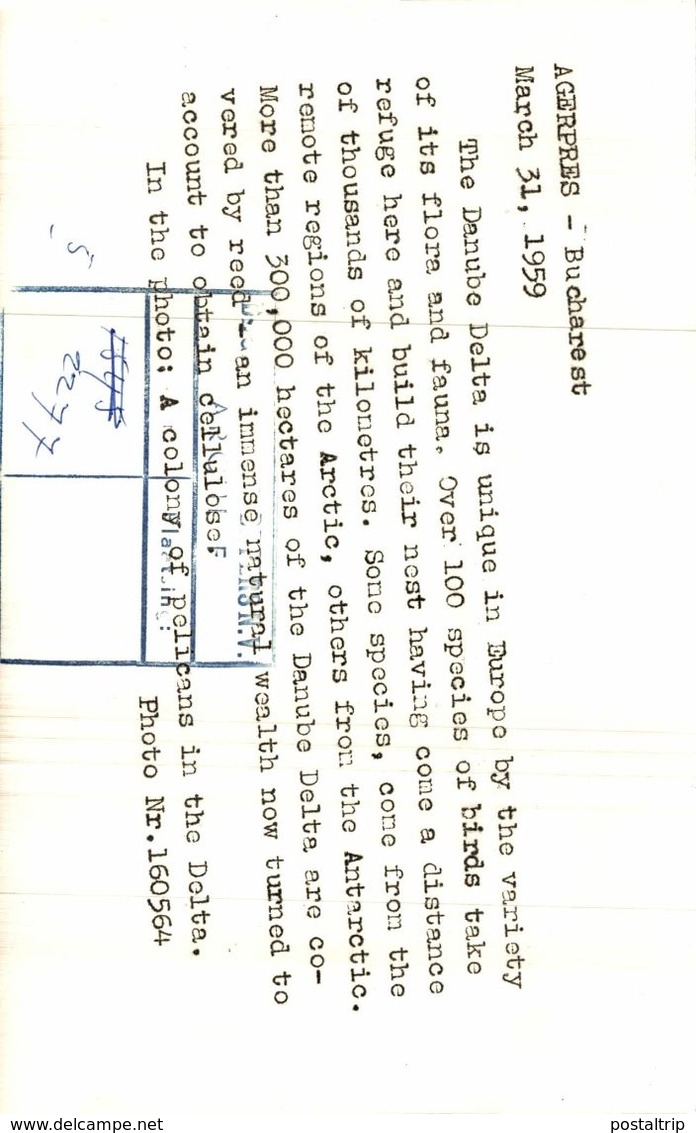 AGERPRES - Bucharest
March 31, 1959
The Danube Delta is unique in Europe by the variety
of its flora and fauna. Over 100 species of birds take
refuge here and build their nest having come a distance
of thousands of kilometres. Some species, come from the
remote regions of the Arctic, others from the Antarctic.
More than 300,000 hectares of the Danube Delta are co-
vered by reed - an immense natural wealth now turned to
account to obtain cellulose.
In the photo: A colony of pelicans in the Delta.
Photo Nr.160564
N.V.
delcampe.net
postaltrip